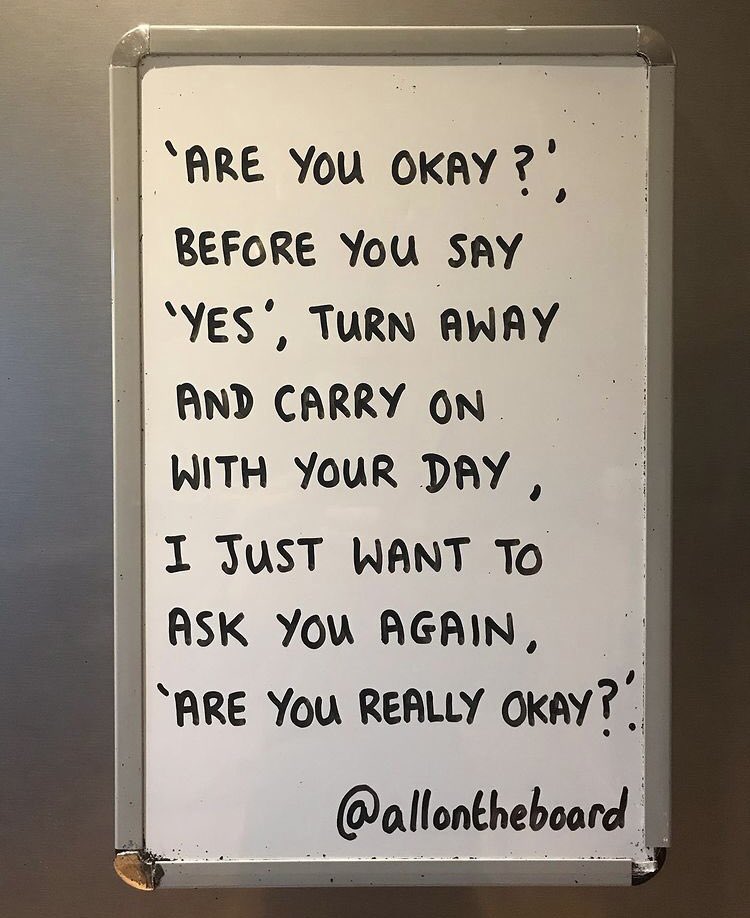 'ARE YOU OKAY?',
BEFORE YOU SAY
'YES', TURN AWAY
AND CARRY ON
WITH YOUR DAY,
I JUST WANT TO
ASK YOU AGAIN,
'ARE YOU REALLY OKAY?'.
@allontheboard